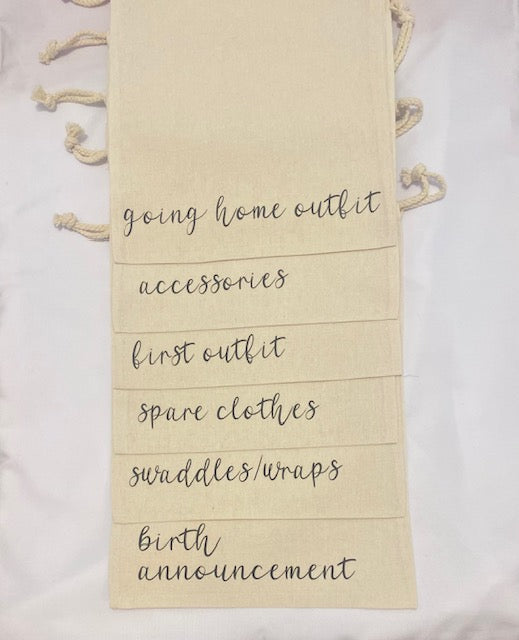 going home outfit
accessories
first outfit
spare clothes
swaddles/wraps
birth
announcement